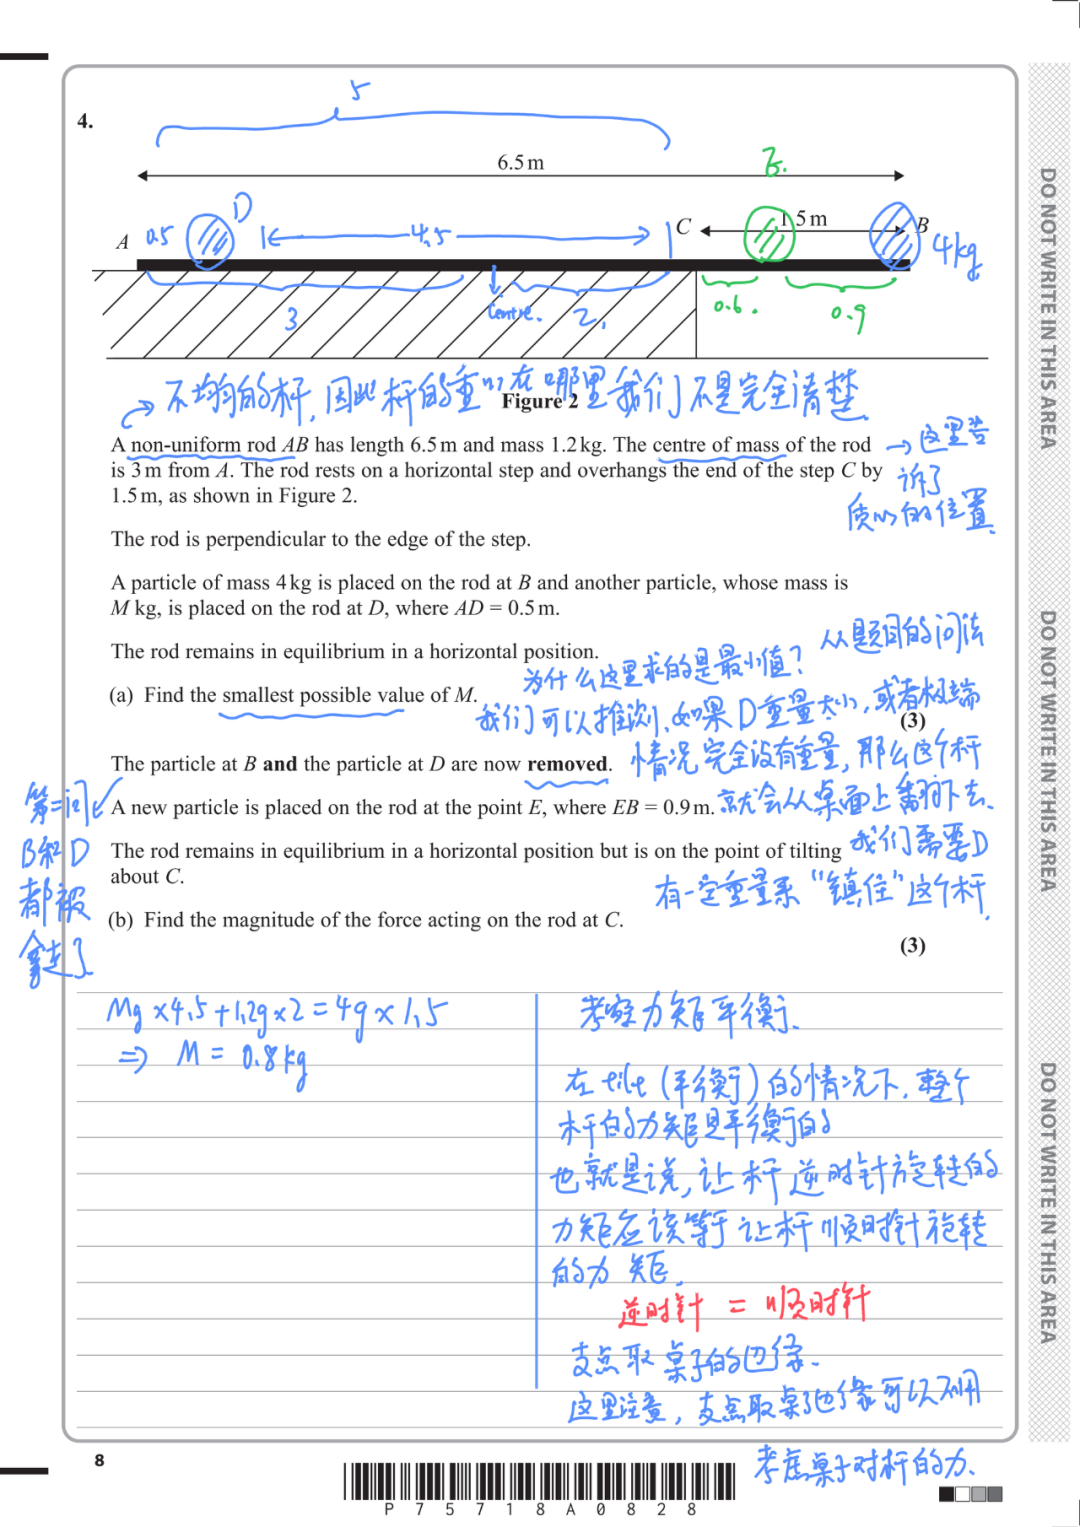 5
4.
6.5 m
E.
D
A
0.5
4.5
C
1.5 m
B
4kg
3
centre.
2.
0.6.
0.9
不均匀的杆,因此杆的重心在哪里我们不是完全清楚
Figure 2
A non-uniform rod AB has length 6.5 m and mass 1.2 kg. The centre of mass of the rod
is 3 m from A. The rod rests on a horizontal step and overhangs the end of the step C by
1.5 m, as shown in Figure 2.
→这里告
诉了
质心的位置.
The rod is perpendicular to the edge of the step.
A particle of mass 4 kg is placed on the rod at B and another particle, whose mass is
M kg, is placed on the rod at D, where AD = 0.5 m.
The rod remains in equilibrium in a horizontal position.
(a) Find the smallest possible value of M.
(3)
为什么这里求的是最小值?
从题目的问法
我们可以推测,如果D重量太小,或者极端
情况完全没有重量,那么这个杆
就会从桌面上翻下去.
我们需要D
有一定重量来“镇住”这个杆.
The particle at B and the particle at D are now removed.
A new particle is placed on the rod at the point E, where EB = 0.9 m.
The rod remains in equilibrium in a horizontal position but is on the point of tilting
about C.
(b) Find the magnitude of the force acting on the rod at C.
(3)
第二问
B和D
都被
拿走了
Mg×4.5+1.2g×2=4g×1.5
⇒ M = 0.8kg
考察力矩平衡.
在tilt(平衡)的情况下,整个
杆的力矩是平衡的
也就是说,让杆逆时针旋转的
力矩应该等于让杆顺时针旋转
的力矩.
逆时针 = 顺时针
支点取桌子的边缘.
这里注意,支点取桌子边缘可以不用
考虑桌子对杆的力.
8
P75718A0828
DO NOT WRITE IN THIS AREA
DO NOT WRITE IN THIS AREA
DO NOT WRITE IN THIS AREA